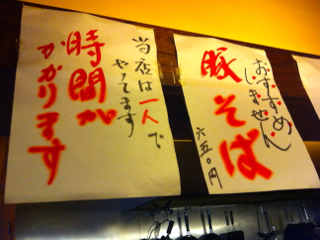 おすすめ
しません
豚そば
六五〇円
当店は一人で
やってます
時間が
かかります